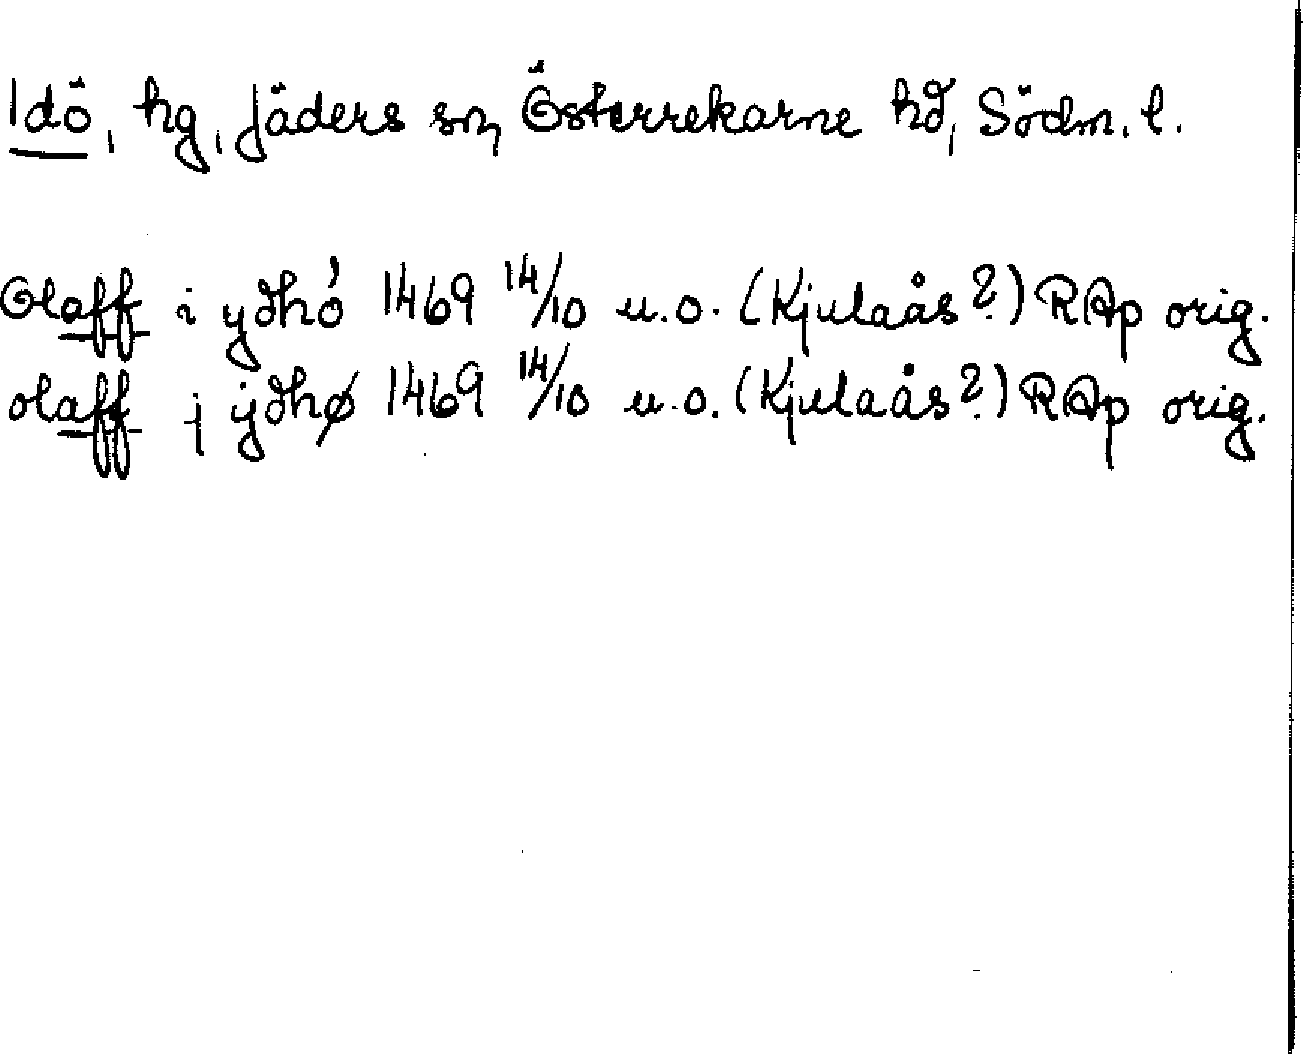 Idö, hg, Jäders sn, Österrekarne hd, Södm. l.
Olaff i ydhó 1469 14/10 u.o. (Kjulaås?) RAp orig.
olaff j ÿdhø 1469 14/10 u.o. (Kjulaås?) RAp orig.